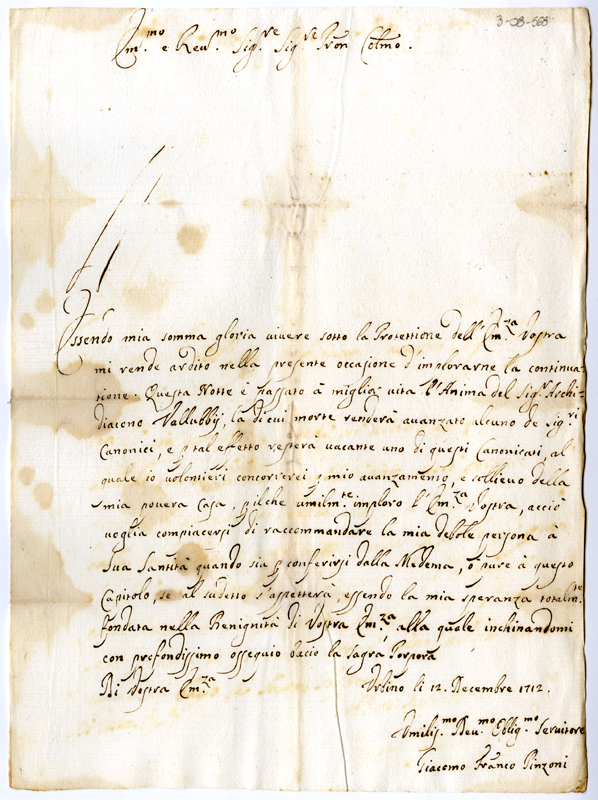 3-08-568
Em.mo e Reu.mo Sig.re Sig.re Pron Colmo.
Essendo mia somma gloria vivere sotto la Protettione dell'Em.za Vostra
mi rende ardito nella presente occasione d'implorarne la continua-
tione. Questa Notte è passato à miglior vita l'Anima del Sig.r Archi-
diacono, la di cui morte renderà avanzato alcuno de Sig.ri
Canonici, e p tal effetto resterà vacante uno di questi Canonicati, al
quale io volontieri concorrerei p mio avanzamento, e sollievo della
mia povera Casa, p ilche umilm.te imploro l'Em.za Vostra, acciò
voglia compiacersi di raccommandare la mia debole persona à
Sua Santità quando sia p conferirsi dalla Medema, ò pure à questo
Capitolo, se al sudetto s'aspetterà, essendo la mia speranza totalm.te
fondata nella Benignità di Vostra Em.za, alla quale inchinandomi
con profondissimo ossequio bacio la Sagra Porpora
Di Vostra Em.za
Urbino li 12. Decembre 1712.
Umiliss.mo Deu.mo Oblig.mo Servitore
Giacomo Franco Pinzoni